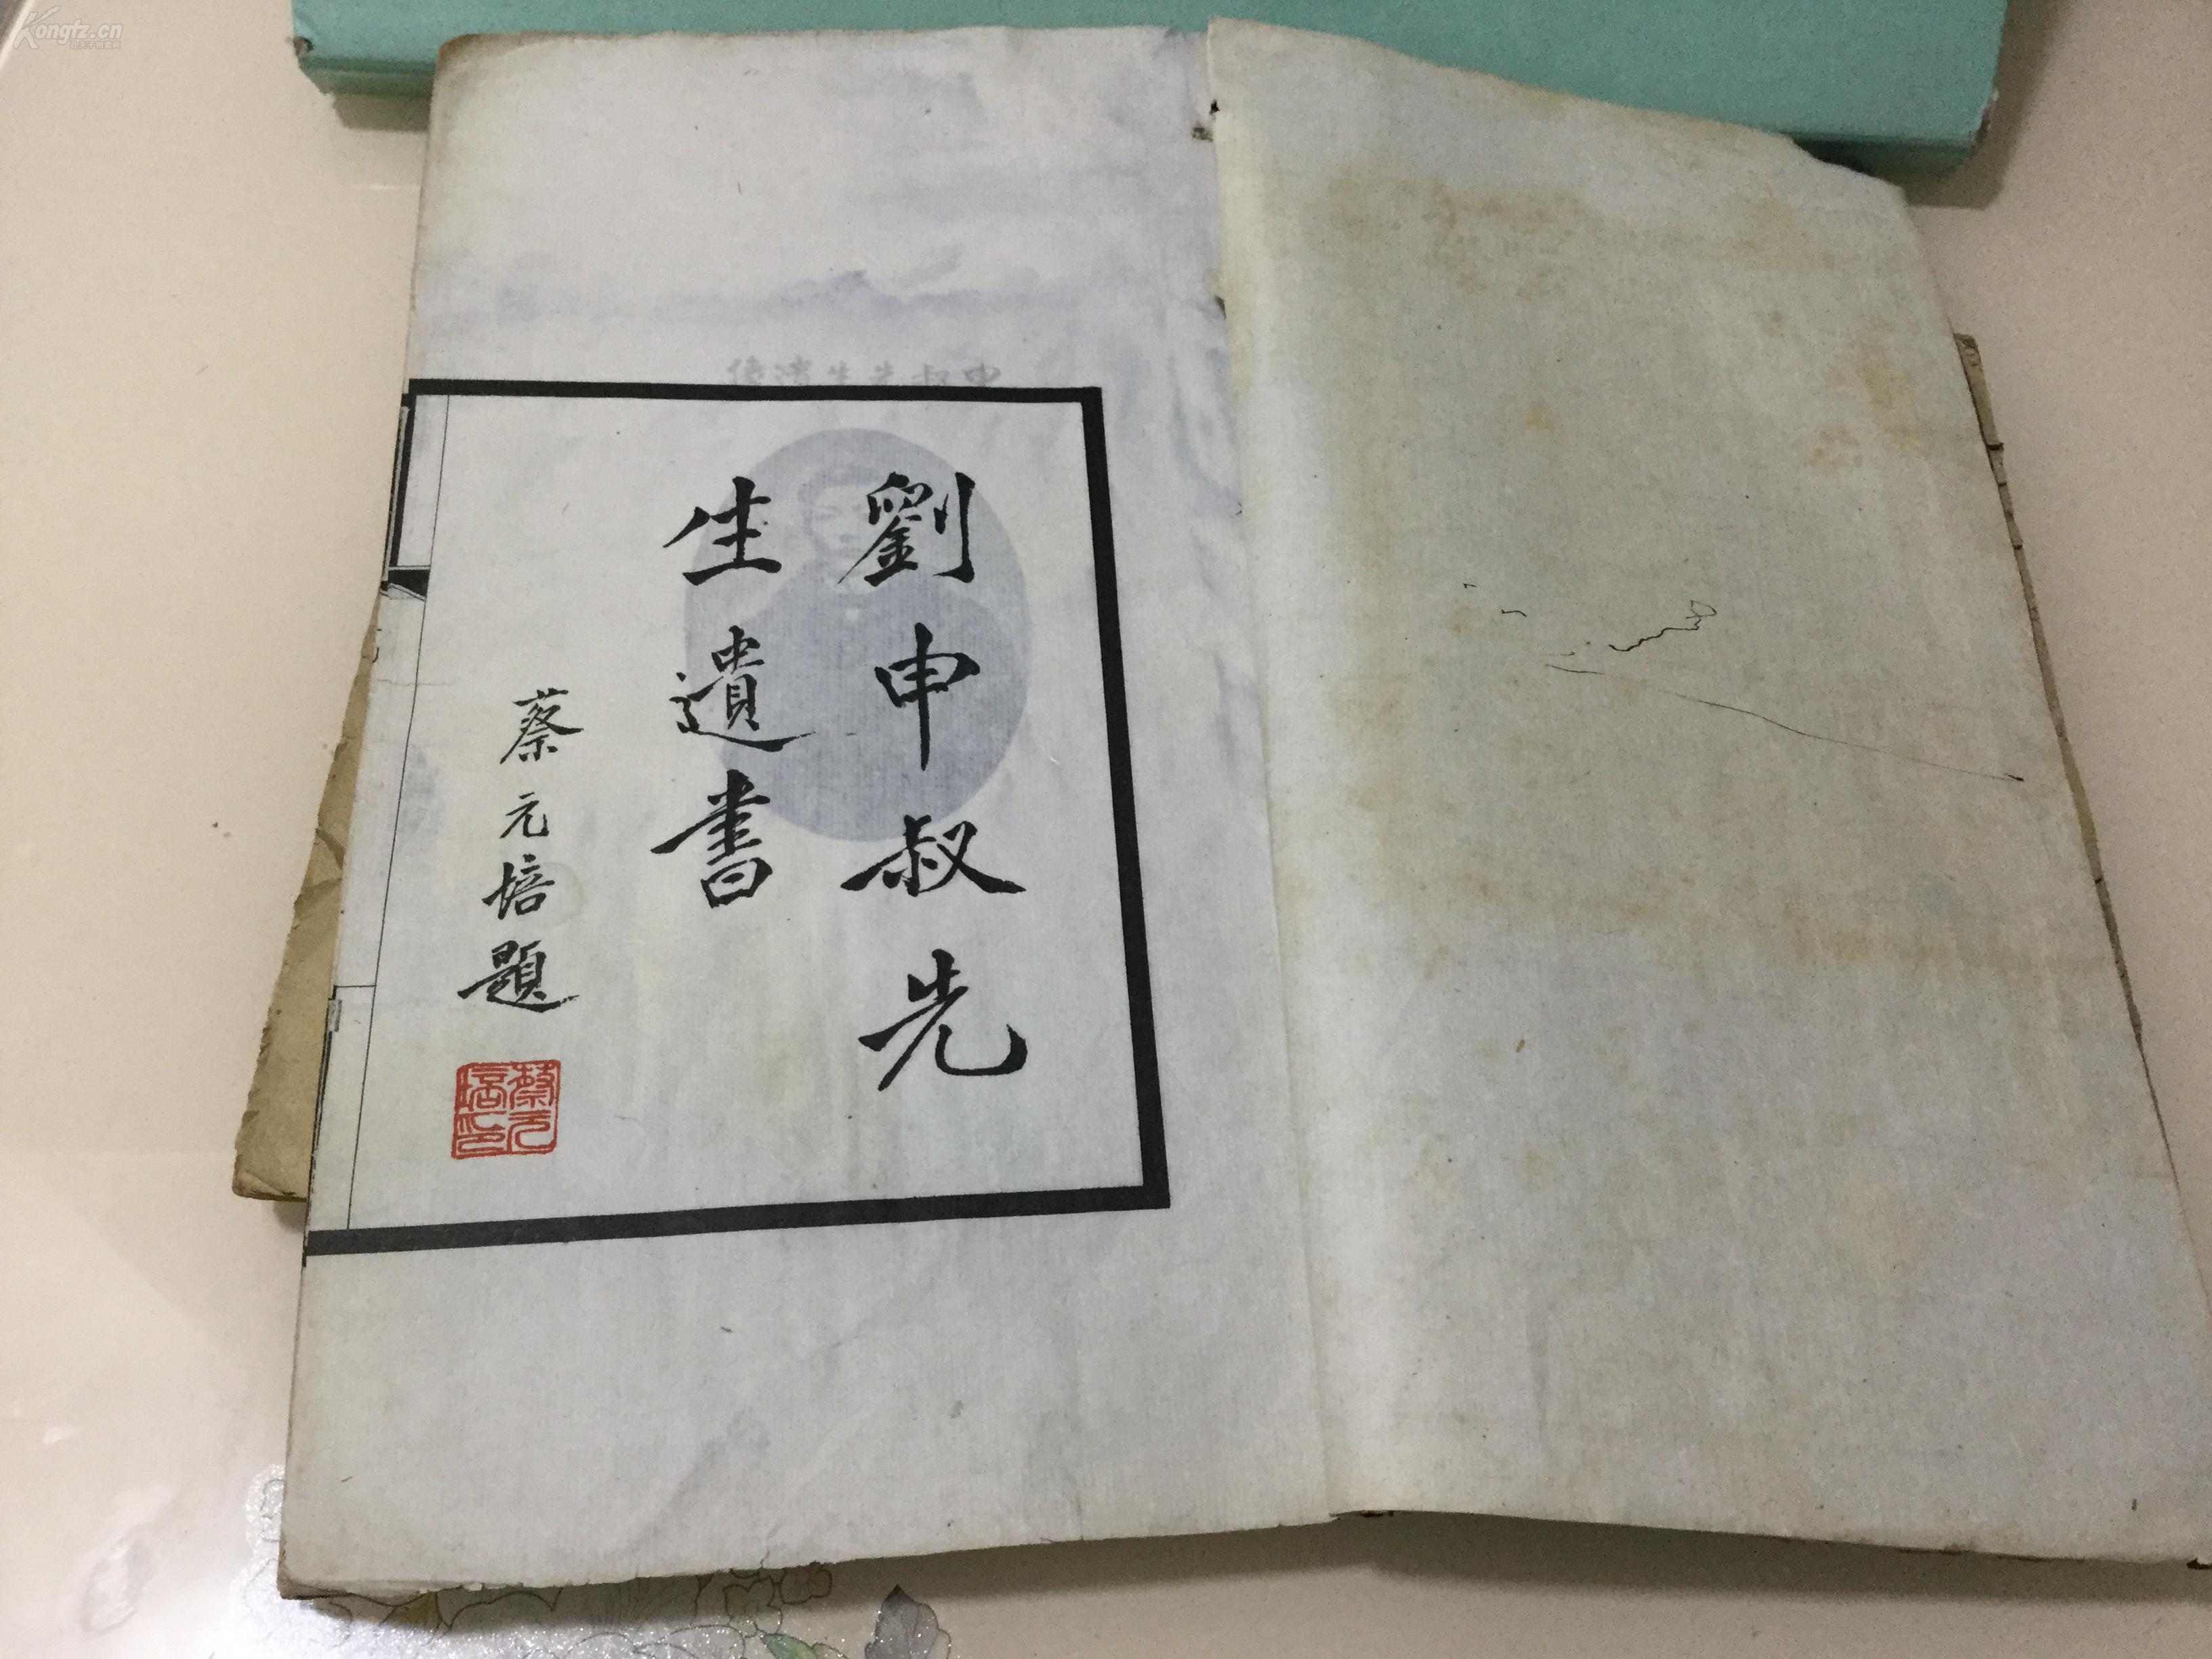 劉申叔先
生遺書
蔡元培題
蔡元
培印
申叔先生遺像
Kongfz.cn